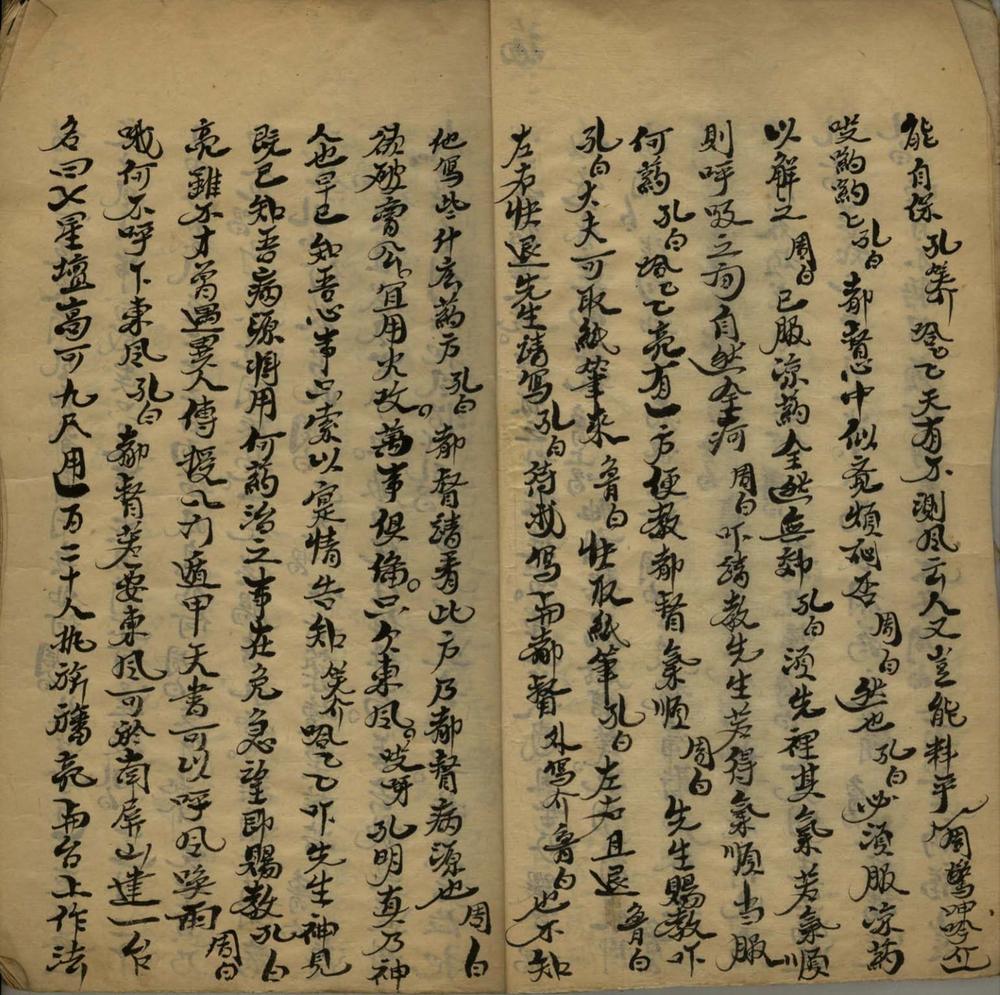 能自保孔笑介哈乙乙天有不測風云人又豈能料乎周驚呻吟介
哎喲喲乜孔白都督心中似竟煩悶否周白然也孔白必須服凉葯
以解之周白已服凉葯全然無効孔白須先理其氣若氣順
則呼吸之間自然全疴周白吓請教先生若得氣順当服
何葯孔白哈乙乙亮有一方便教都督氣順周白先生賜教吓
孔白大夫可取紙筆來魯白快取紙筆孔白左右且退魯白
左右快退先生請寫孔白待我寫與都督介寫介魯白也不知
他寫些什広葯方孔白都督請看此方乃都督病源也周白
欲破曹公宜用火攻萬事俱備只欠東風哎呀孔明真乃神
人也早已知吾心事只索以寔情告知笑介哈乙乙吓先生神見
既已知吾病源將用何葯治之事在危急望即賜教孔白
亮雖不才曾遇異人傳授八門遁甲天書可以呼風喚雨周白
哦何不呼下東風孔白都督若要東風可於南屏山建一台
名曰七星壇高可九尺用一百二十人執旂旛亮與台上作法